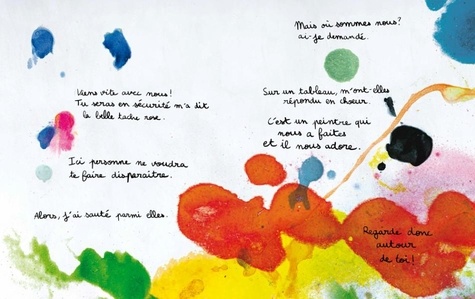 Viens vite avec nous!
Tu seras en sécurité m'a dit
la belle tache rose.
Ici personne ne voudra
te faire disparaître.
Alors, j'ai sauté parmi elles.
Mais où sommes nous?
ai-je demandé.
Sur un tableau, m'ont-elles
répondu en chœur.
C'est un peintre qui
nous a faites
et il nous adore.
Regarde donc
autour
de toi!